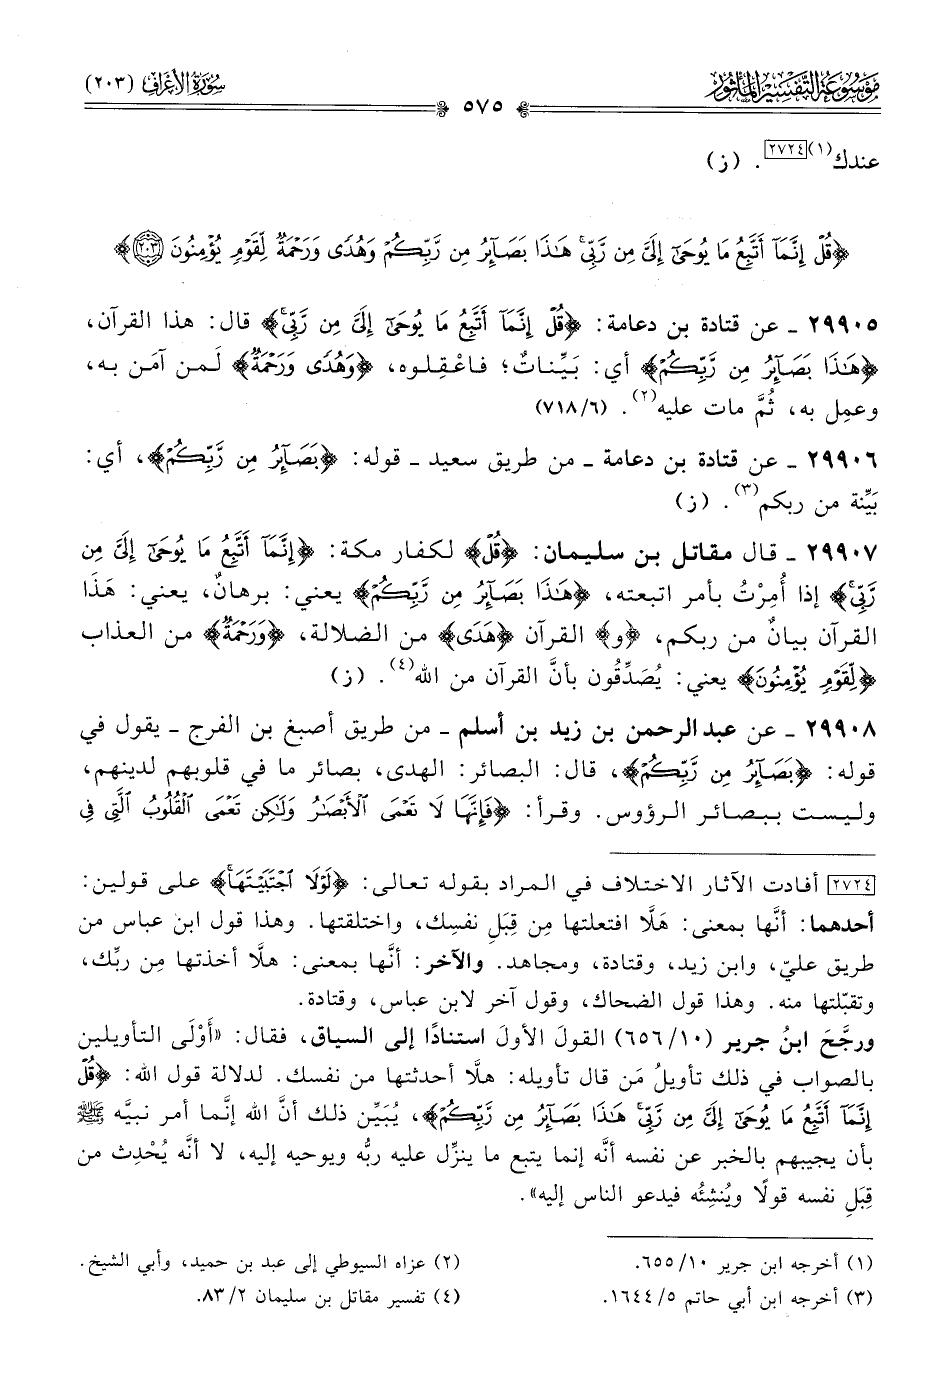 مَوْسُوعَة التَّفْسِيْرِ المَأْثُور
سُورَةُ الأَعْرَافِ (٢٠٣)
٥٧٥
عندك(١)[٢٧٢٤]. (ز)
﴿قُلْ إِنَّمَآ أَتَّبِعُ مَا يُوحَىٰٓ إِلَىَّ مِن رَّبِّىۚ هَـٰذَا بَصَآئِرُ مِن رَّبِّكُمْ وَهُدًى وَرَحْمَةٌ لِّقَوْمٍ يُؤْمِنُونَ ٢٠٣﴾
٢٩٩٠٥ ـ عن قتادة بن دعامة: ﴿قُلْ إِنَّمَآ أَتَّبِعُ مَا يُوحَىٰٓ إِلَىَّ مِن رَّبِّىۚ﴾ قال: هذا القرآن،
﴿هَـٰذَا بَصَآئِرُ مِن رَّبِّكُمْ﴾ أي: بَيِّناتٌ؛ فاعْقِلوه، ﴿وَهُدًى وَرَحْمَةٌ﴾ لَمن آمَن به،
وعمِل به، ثُمَّ مات عليه(٢). (٧١٨/٦)
٢٩٩٠٦ ـ عن قتادة بن دعامة ـ من طريق سعيد ـ قوله: ﴿بَصَآئِرُ مِن رَّبِّكُمْ﴾، أي:
بَيِّنة من ربكم(٣). (ز)
٢٩٩٠٧ ـ قال مقاتل بن سليمان: ﴿قُلْ﴾ لكفار مكة: ﴿إِنَّمَآ أَتَّبِعُ مَا يُوحَىٰٓ إِلَىَّ مِن
رَّبِّىۚ﴾ إذا أُمِرْتُ بأمر اتبعته، ﴿هَـٰذَا بَصَآئِرُ مِن رَّبِّكُمْ﴾ يعني: برهانٌ، يعني: هَذَا
القرآن بيانٌ من ربكم، ﴿و﴾ القرآن ﴿هَدَى﴾ من الضلالة، ﴿وَرَحْمَةٌ﴾ من العذاب
﴿لِّقَوْمٍ يُؤْمِنُونَ﴾ يعني: يُصَدِّقُون بأنَّ القرآن من الله(٤). (ز)
٢٩٩٠٨ ـ عن عبدالرحمن بن زيد بن أسلم ـ من طريق أصبغ بن الفرج ـ يقول في
قوله: ﴿بَصَآئِرُ مِن رَّبِّكُمْ﴾، قال: البصائر: الهدى، بصائر ما في قلوبهم لدينهم،
وليست ببصائر الرؤوس. وقرأ: ﴿فَإِنَّهَا لَا تَعْمَى ٱلْأَبْصَـٰرُ وَلَـٰكِن تَعْمَى ٱلْقُلُوبُ ٱلَّتِى فِى
[٢٧٢٤] أفادت الآثار الاختلاف في المراد بقوله تعالى: ﴿لَوْلَا ٱجْتَبَيْتَهَاۚ﴾ على قولين:
أحدهما: أنَّها بمعنى: هَلَّا افتعلتها مِن قِبَل نفسِك، واختلقتها. وهذا قول ابن عباس من
طريق عليّ، وابن زيد، وقتادة، ومجاهد. والآخر: أنَّها بمعنى: هلَّا أخذتها مِن ربِّك،
وتقبَّلتها منه. وهذا قول الضحاك، وقول آخر لابن عباس، وقتادة.
ورجَّحَ ابنُ جرير (٦٥٦/١٠) القولَ الأولَ استنادًا إلى السياق، فقال: «أَوْلَى التأويلين
بالصواب في ذلك تأويلُ مَن قال تأويله: هلَّا أحدثتها من نفسك. لدلالة قول الله: ﴿قُلْ
إِنَّمَآ أَتَّبِعُ مَا يُوحَىٰٓ إِلَىَّ مِن رَّبِّىۚ هَـٰذَا بَصَآئِرُ مِن رَّبِّكُمْ﴾، يُبَيِّن ذلك أنَّ الله إنَّما أمر نبيَّه ﷺ
بأن يجيبهم بالخبر عن نفسه أنَّه إنما يتبع ما ينزِّل عليه ربُّه ويوحيه إليه، لا أنَّه يُحْدِث من
قِبَلِ نفسه قولًا ويُنشِئُه فيدعو الناس إليه».
(١) أخرجه ابن جرير ٦٥٥/١٠.
(٢) عزاه السيوطي إلى عبد بن حميد، وأبي الشيخ.
(٣) أخرجه ابن أبي حاتم ١٦٤٤/٥.
(٤) تفسير مقاتل بن سليمان ٨٣/٢.